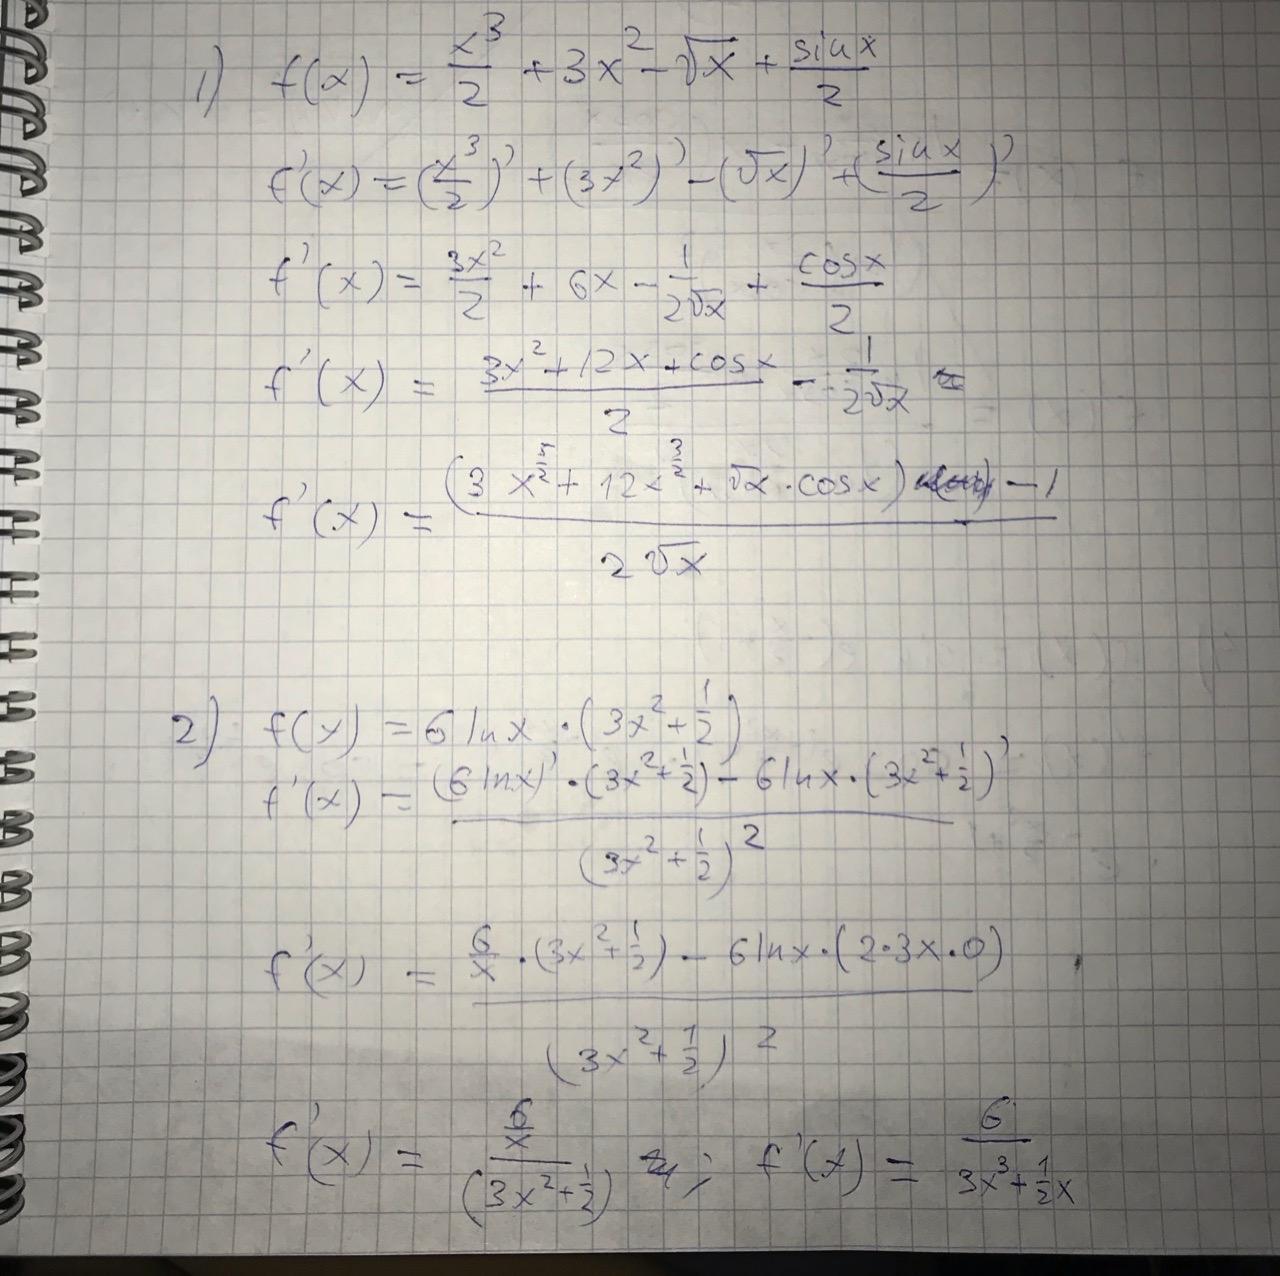 1) f(x) = x³/2 + 3x² - √x + sin x/2
f'(x) = (x³/2)' + (3x²)' - (√x)' + (sin x/2)'
f'(x) = 3x²/2 + 6x - 1/(2√x) + cos x/2
f'(x) = (3x² + 12x + cos x)/2 - 1/(2√x) =
f'(x) = ((3x^(5/2) + 12x^(3/2) + √x · cos x) - 1)/(2√x)
2) f(x) = 6 ln x · (3x² + 1/2)
f'(x) = ((6 ln x)' · (3x² + 1/2) - 6 ln x · (3x² + 1/2)')/(3x² + 1/2)²
f'(x) = (6/x · (3x² + 1/2) - 6 ln x · (2·3x·0))/(3x² + 1/2)²
f'(x) = (6/x)/(3x² + 1/2) ; f'(x) = 6/(3x³ + 1/2 x)